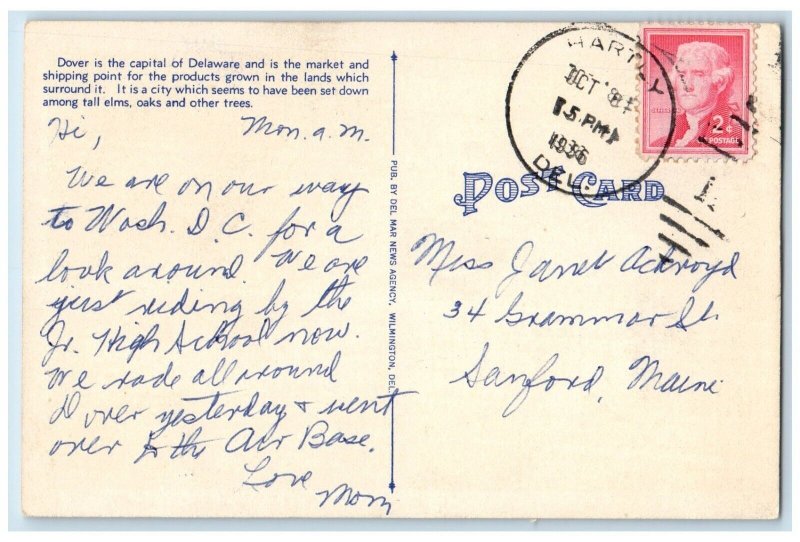 Dover is the capital of Delaware and is the market and
shipping point for the products grown in the lands which
surround it. It is a city which seems to have been set down
among tall elms, oaks and other trees.
Hi, Mon. a.m.
We are on our way
to Wash. D.C. for a
look around. We are
just riding by the
Jr. High School now.
We rode all around
Dover yesterday & went
over to the Air Base.
Love
Mom
PUB. BY DEL MAR NEWS AGENCY, WILMINGTON, DEL.
HARTLY
OCT 8
5 PM
DEL.
2¢
POSTAGE
POST CARD
Miss Janet Ackroyd
34 Grammar St.
Sanford, Maine